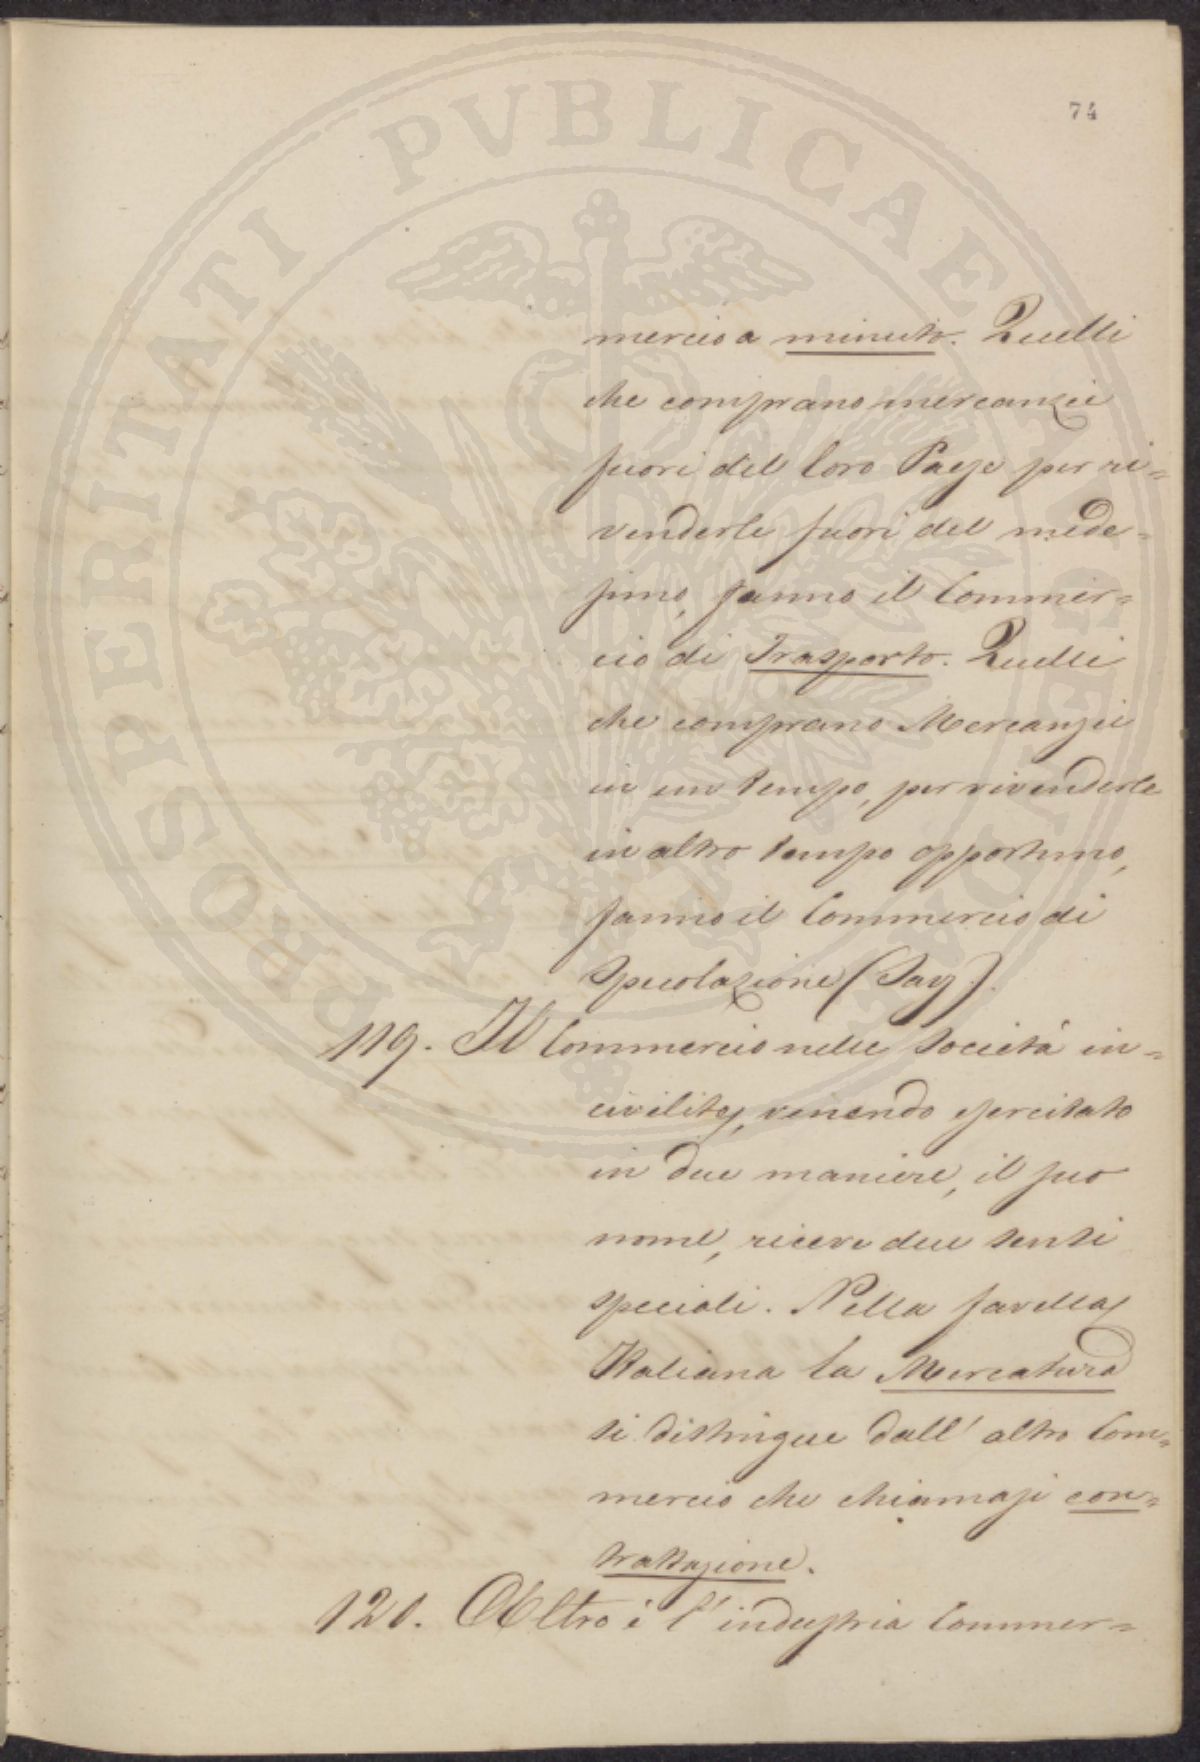 PROSPERITATI PVBLICAE AVGENDAE
74
mercio a minuto. Quelli
che comprano mercanzie
fuori del loro Paese per ri=
venderle fuori del mede=
simo, fanno il Commer=
cio di Trasporto. Quelli
che comprano Mercanzie
in un tempo, per rivenderle
in altro tempo opportuno,
fanno il Commercio di
Specolazione (Say).
119. Il Commercio nelle Società in=
civilite, venendo esercitato
in due maniere, il suo
nome, riceve due sensi
speciali. Nella favella
Italiana la Mercatura
si distingue dall' altro Com=
mercio che chiamasi con=
trattazione.
120. Altro è l' industria Commer=